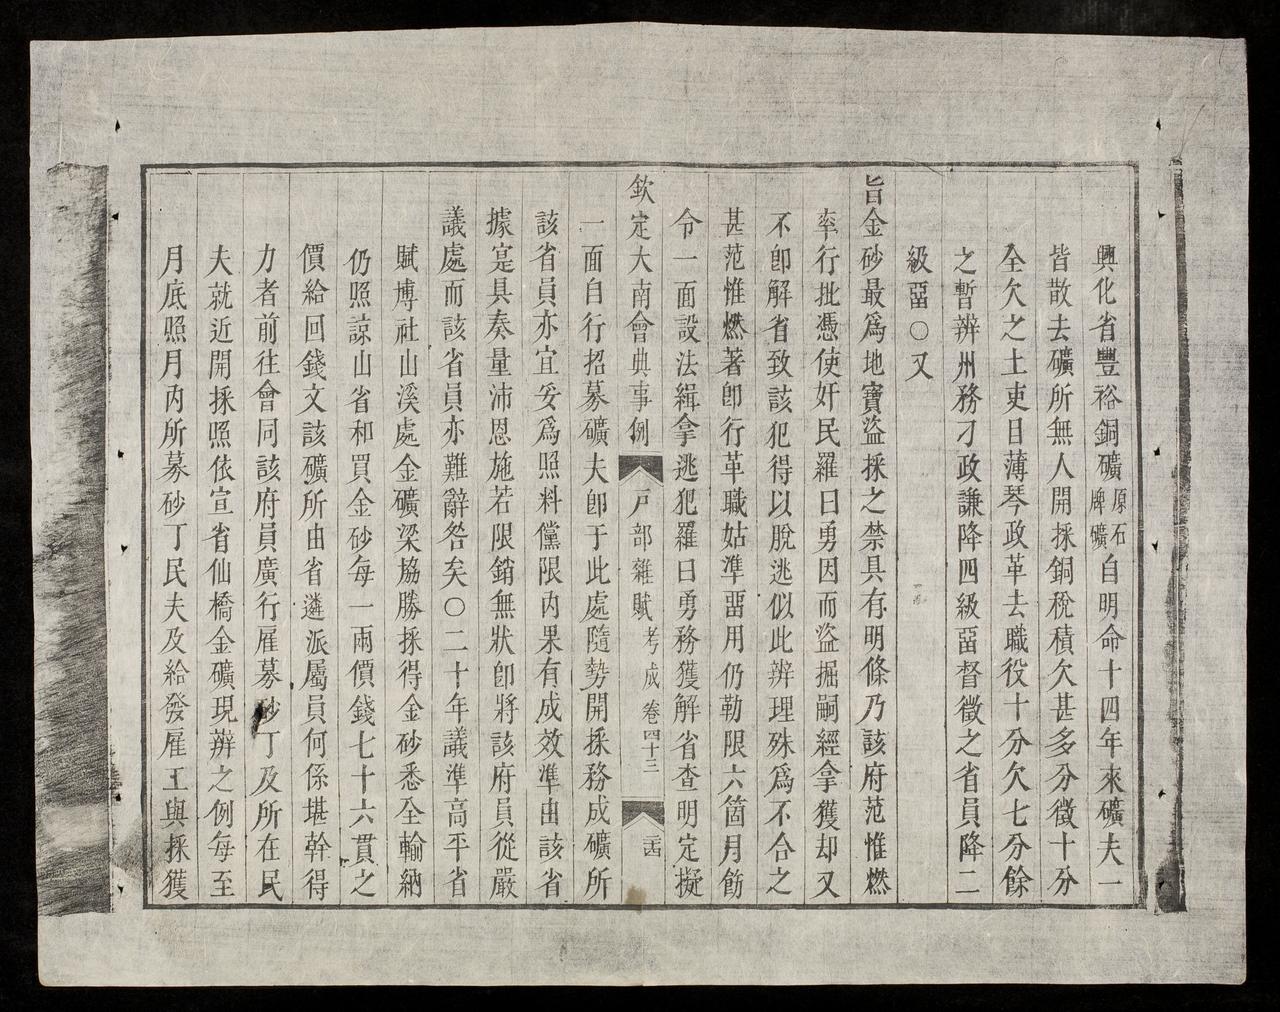 興化省豐裕銅礦原石牌礦自明命十四年來礦夫一
皆散去礦所無人開採銅稅積欠甚多分徵十分
全欠之土吏目薄琴政革去職役十分欠七分餘
之暫辨州務刁政謙降四級畱督徵之省員降二
級畱○又
旨金砂最爲地寶盜採之禁具有明條乃該府范惟燃
率行批憑使奸民羅曰勇因而盜掘嗣經拿獲却又
不卽解省致該犯得以脫逃似此辨理殊爲不合之
甚范惟燃著卽行革職姑準畱用仍勒限六箇月飭
令一面設法緝拿逃犯羅曰勇務獲解省查明定擬
欽定大南會典事例 戸部雜賦 考成 卷四十三 三四
一面自行招募礦夫卽于此處隨勢開採務成礦所
該省員亦宜妥爲照料儻限內果有成效準由該省
據寔具奏量沛恩施若限銷無狀卽將該府員從嚴
議處而該省員亦難辭咎矣○二十年議準高平省
賦博社山溪處金礦梁協勝採得金砂悉仝輸納
仍照諒山省和買金砂每一兩價錢七十六貫之
價給回錢文該礦所由省遴派屬員何係堪幹得
力者前往會同該府員廣行雇募砂丁及所在民
夫就近開採照依宣省仙橋金礦現辨之例每至
月底照月內所募砂丁民夫及給發雇工與採獲